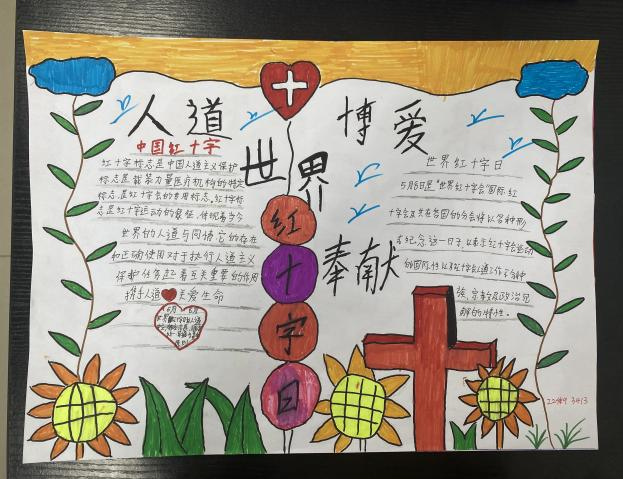 人道
博爱
世界
奉献
红
十
字
日
中国红十字
红十字标志是中国人道主义保护
标志是武装力量医疗机构的特定
标志是红十字会的专用标志,红十字标
志是红十字运动的象征,体现着当今
世界的人道与同情它的存在
和正确使用对于执行人道主义
保护任务起着至关重要的作用
携手人道 关爱生命
世界红十字日
5月8日是"世界红十字会"国际红
十字会及其在各国的分会将以各种形
式纪念这一日子,以表示红十字会运动
的国际性以及红十字会人道工作不分种
族、宗教及政治见
解的特性。